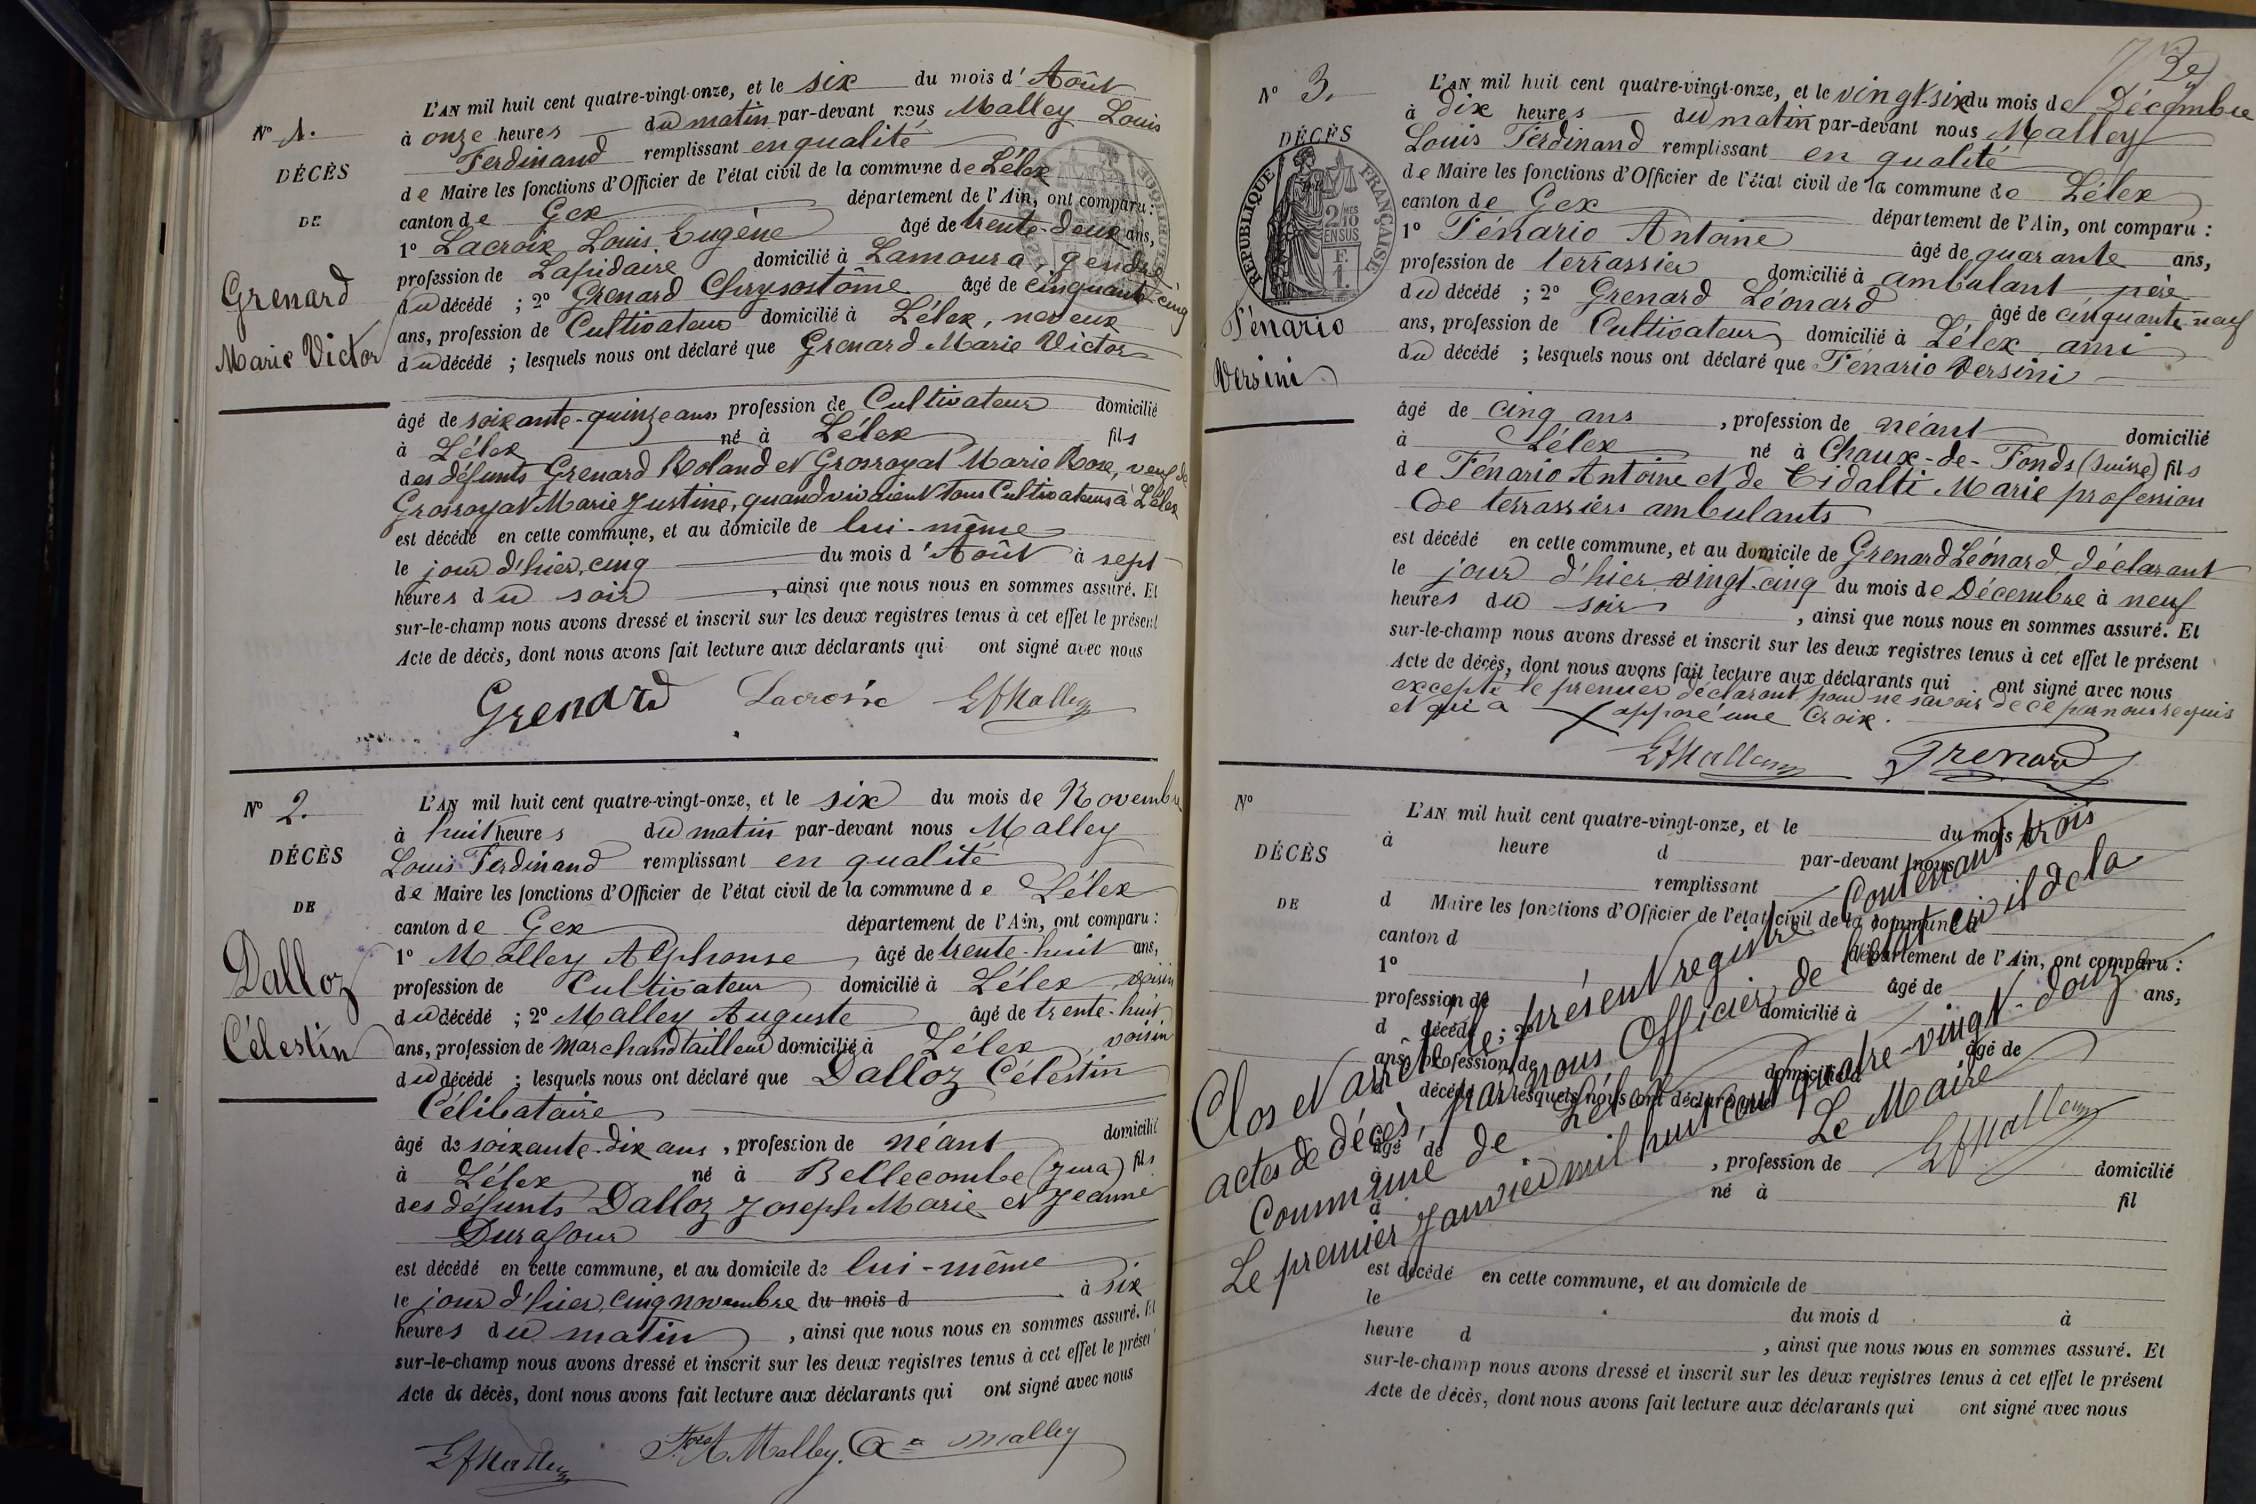 L'AN mil huit cent quatre-vingt-onze, et le six du mois d'Août
N° 1.
à onze heures du matin par-devant nous Malley Louis
Ferdinand remplissant en qualité
DÉCÈS
de Maire les fonctions d'Officier de l'état civil de la commune de Lélex
DE
canton de Gex département de l'Ain, ont comparu :
1° Lacroix Louis Eugène âgé de trente-deux ans,
profession de Lapidaire domicilié à Lamoura, gendre
Grenard
Marie Victor
du décédé ; 2° Grenard Chrysostôme âgé de cinquante cinq
ans, profession de Cultivateur domicilié à Lélex, neveux
du décédé ; lesquels nous ont déclaré que Grenard Marie Victor
âgé de soixante-quinze ans, profession de Cultivateur domicilié
à Lélex né à Lélex fils
des défunts Grenard Roland et Grosroyat Marie Rose, veuf de
Grosroyat Marie Justine, quand vivaient tous Cultivateurs à Lélex
est décédé en cette commune, et au domicile de lui-même
le jour d'hier, cinq du mois d'Août à sept
heures du soir, ainsi que nous nous en sommes assuré. Et
sur-le-champ nous avons dressé et inscrit sur les deux registres tenus à cet effet le présent
Acte de décès, dont nous avons fait lecture aux déclarants qui ont signé avec nous
Grenard Lacroix LfMalley
L'AN mil huit cent quatre-vingt-onze, et le six du mois de Novembre
N° 2.
à huit heures du matin par-devant nous Malley
DÉCÈS
Louis Ferdinand remplissant en qualité
de Maire les fonctions d'Officier de l'état civil de la commune de Lélex
DE
canton de Gex département de l'Ain, ont comparu :
Dalloz
Célestin
1° Malley Alphonse âgé de trente-huit ans,
profession de Cultivateur domicilié à Lélex, voisin
du décédé ; 2° Malley Auguste âgé de trente-huit
ans, profession de Marchand tailleur domicilié à Lélex, voisin
du décédé ; lesquels nous ont déclaré que Dalloz Célestin
Célibataire
âgé de soixante-dix ans, profession de néant domicilié
à Lélex né à Bellecombe (Jura) fils
des défunts Dalloz Joseph Marie et Jeanne
Durafour
est décédé en cette commune, et au domicile de lui-même
le jour d'hier, cinq novembre du mois d à six
heures du matin, ainsi que nous nous en sommes assuré. Et
sur-le-champ nous avons dressé et inscrit sur les deux registres tenus à cet effet le présent
Acte de décès, dont nous avons fait lecture aux déclarants qui ont signé avec nous
LfMalley Malley. Malley
L'AN mil huit cent quatre-vingt-onze, et le vingt-six du mois de Décembre
N° 3.
à dix heures du matin par-devant nous Malley
DÉCÈS
Louis Ferdinand remplissant en qualité
de Maire les fonctions d'Officier de l'état civil de la commune de Lélex
RÉPUBLIQUE FRANÇAISE
2/10 EN SUS
F. 1.
canton de Gex département de l'Ain, ont comparu :
1° Fénario Antoine âgé de quarante ans,
profession de terrassier domicilié à ambulant père
Fénario
Versini
du décédé ; 2° Grenard Léonard âgé de cinquante-neuf
ans, profession de Cultivateur domicilié à Lélex ami
du décédé ; lesquels nous ont déclaré que Fénario Versini
âgé de cinq ans, profession de néant domicilié
à Lélex né à Chaux-de-Fonds (Suisse) fils
de Fénario Antoine et de Cidalti Marie profession
de terrassiers ambulants
est décédé en cette commune, et au domicile de Grenard Léonard, déclarant
le jour d'hier vingt-cinq du mois de Décembre à neuf
heures du soir, ainsi que nous nous en sommes assuré. Et
sur-le-champ nous avons dressé et inscrit sur les deux registres tenus à cet effet le présent
Acte de décès, dont nous avons fait lecture aux déclarants qui ont signé avec nous
excepté le premier déclarant pour ne savoir de ce par nous requis
et qui a apposé une Croix.
LfMalley Grenard
N°
L'AN mil huit cent quatre-vingt-onze, et le du mois d
DÉCÈS
à heure d par-devant nous
remplissant
DE
d Maire les fonctions d'Officier de l'état civil de la commune d
canton d département de l'Ain, ont comparu :
1° âgé de ans,
profession de domicilié à
d décédé ; 2° âgé de
ans, profession de domicilié à
d décédé ; lesquels nous ont déclaré que
âgé de , profession de domicilié
à né à fil
Clos et arrêté le présent registre Contenant trois
actes de décès, par nous Officier de l'état civil de la
Commune de Lélex
Le premier Janvier mil huit cent quatre-vingt-douze
Le Maire
LfMalley
est décédé en cette commune, et au domicile de
le du mois d à
heure d , ainsi que nous nous en sommes assuré. Et
sur-le-champ nous avons dressé et inscrit sur les deux registres tenus à cet effet le présent
Acte de décès, dont nous avons fait lecture aux déclarants qui ont signé avec nous